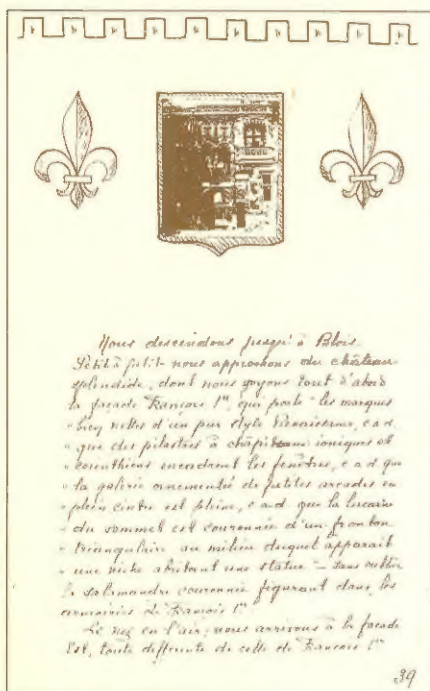 Nous descendons jusqu'à Blois.
Petit à petit nous approchons du château
splendide, dont nous voyons tout d'abord
la façade François 1er, qui porte les marques
bien nettes d'un pur style Renaissance, c.a.d.
que des pilastres à chapiteaux ioniques et
corinthiens encadrent les fenêtres, c.a.d que
la galerie ornementée de petites arcades en
plein cintre est pleine, c.a.d. que la lucarne
du sommet est couronnée d'un fronton
triangulaire au milieu duquel apparaît
une niche abritant une statue - sans oublier
la salamandre couronnée figurant dans les
armoiries de François 1er
Le nez en l'air, nous arrivons à la façade
Est, toute différente de celle de François 1er
39